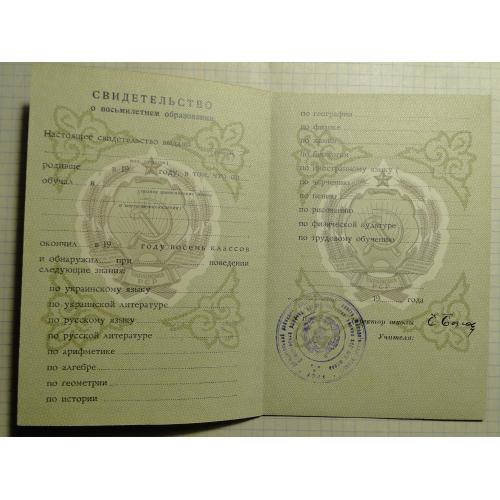 СВИДЕТЕЛЬСТВО
о восьмилетнем образовании
Настоящее свидетельство выдано
родивше в 19 году, в том, что он
обучал в
окончил в 19 году восемь классов
и обнаружил при поведении
следующие знания:
по украинскому языку
по украинской литературе
по русскому языку
по русской литературе
по арифметике
по алгебре
по геометрии
по истории
по географии
по физике
по химии
по биологии
по иностранному языку (
по черчению
по пению
по рисованию
по физической культуре
по трудовому обучению
19 года
Директор школы
Учителя: